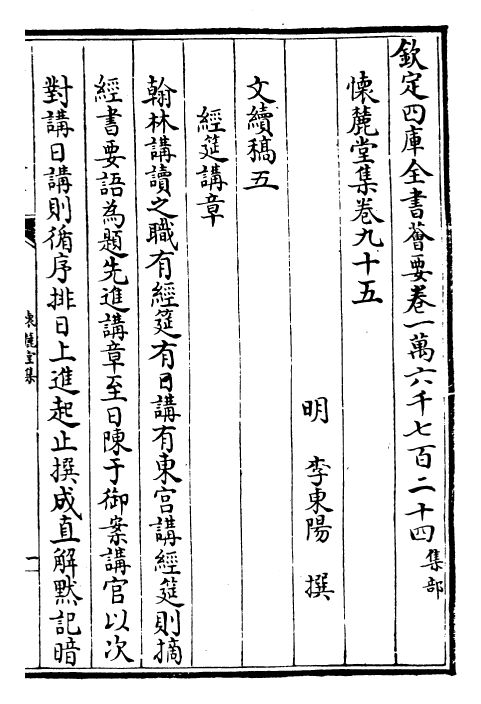 欽定四庫全書薈要卷一萬六千七百二十四集部
懐麓堂集卷九十五
明　李東陽　撰
文續稿五
經筵講章
翰林講讀之職有經筵有日講有東宮講經筵則摘
經書要語為題先進講章至日陳于御案講官以次
對講日講則循序排日上進起止撰成直解黙記暗
懐麓堂集
一